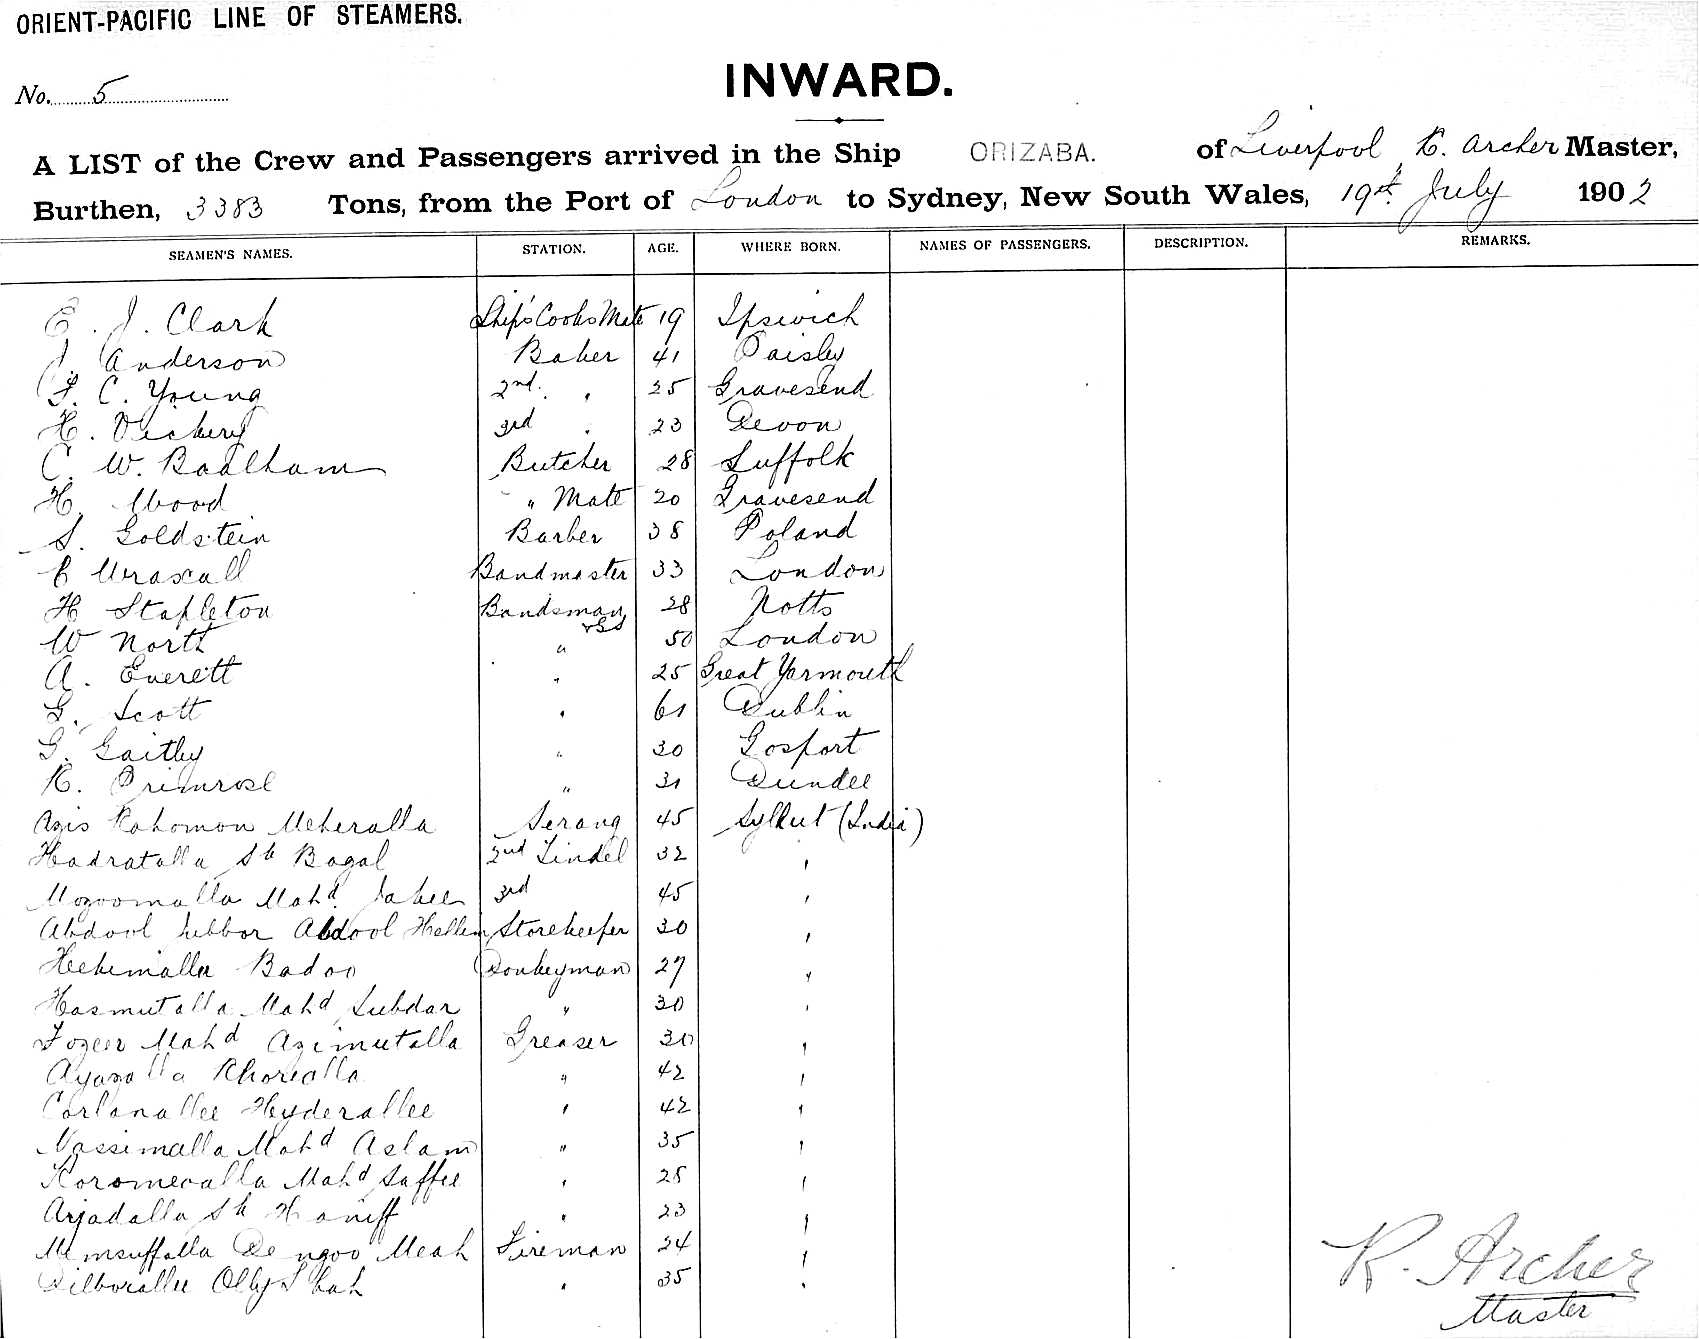 ORIENT-PACIFIC LINE OF STEAMERS.
No. 5
INWARD.
A LIST of the Crew and Passengers arrived in the Ship ORIZABA. of Liverpool R. Archer Master,
Burthen, 3383 Tons, from the Port of London to Sydney, New South Wales, 19th July 1902
SEAMEN'S NAMES. STATION. AGE. WHERE BORN. NAMES OF PASSENGERS. DESCRIPTION. REMARKS.
E. J. Clark Ship's Cooks Mate 19 Ipswich
J. Anderson Baker 41 Paisley
F. C. Young 2nd " 25 Gravesend
H. Vickery 3rd " 23 Devon
C. W. Baalham Butcher 28 Suffolk
H. Wood " Mate 20 Gravesend
S. Goldstein Barber 38 Poland
Bandmaster 33 London
H Stapleton Bandsman 28 Notts
W North " 50 London
A. Everett " 25 Great Yarmouth
G. Scott " 61 Dublin
G. Gaitley " 30 Gosport
R. Primrose " 31 Dundee
Azis Rahomon Meheralla Serang 45 Sylhut (India)
Hadratalla Sk Bagal 2nd Tindel 32 "
Mozoomalla Mahd. 3rd 45 "
Abdool Jubbor Abdool Storekeeper 30 "
Hekimalla Badoo Donkeyman 27 "
Hasmutalla Mahd Subdar " 30 "
Fozeer Mahd Azimutalla Greaser 30 "
Ayazalla " 42 "
Hyderallee " 42 "
Nassimalla Mahd Aslam " 35 "
Mahd Saffee " 25 "
Arjadalla Sk Haniff " 23 "
Meah Fireman 24 "
Dilborallee " 35 "
R. Archer
Master